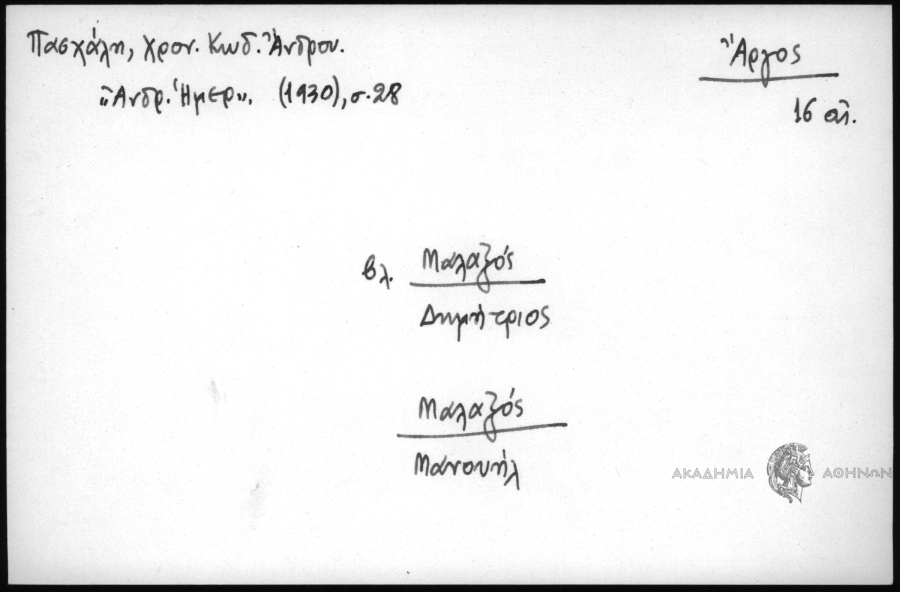 Πασχάλη, χρον. Κωδ. Ἄνδρου.
"Ἀνδρ. Ἡμερ". (1930), σ. 28
Ἄργος
16 αἰ.
βλ. Μαλαξός
Δημήτριος
Μαλαξός
Μανουήλ
ΑΚΑΔΗΜΙΑ ΑΘΗΝΩΝ